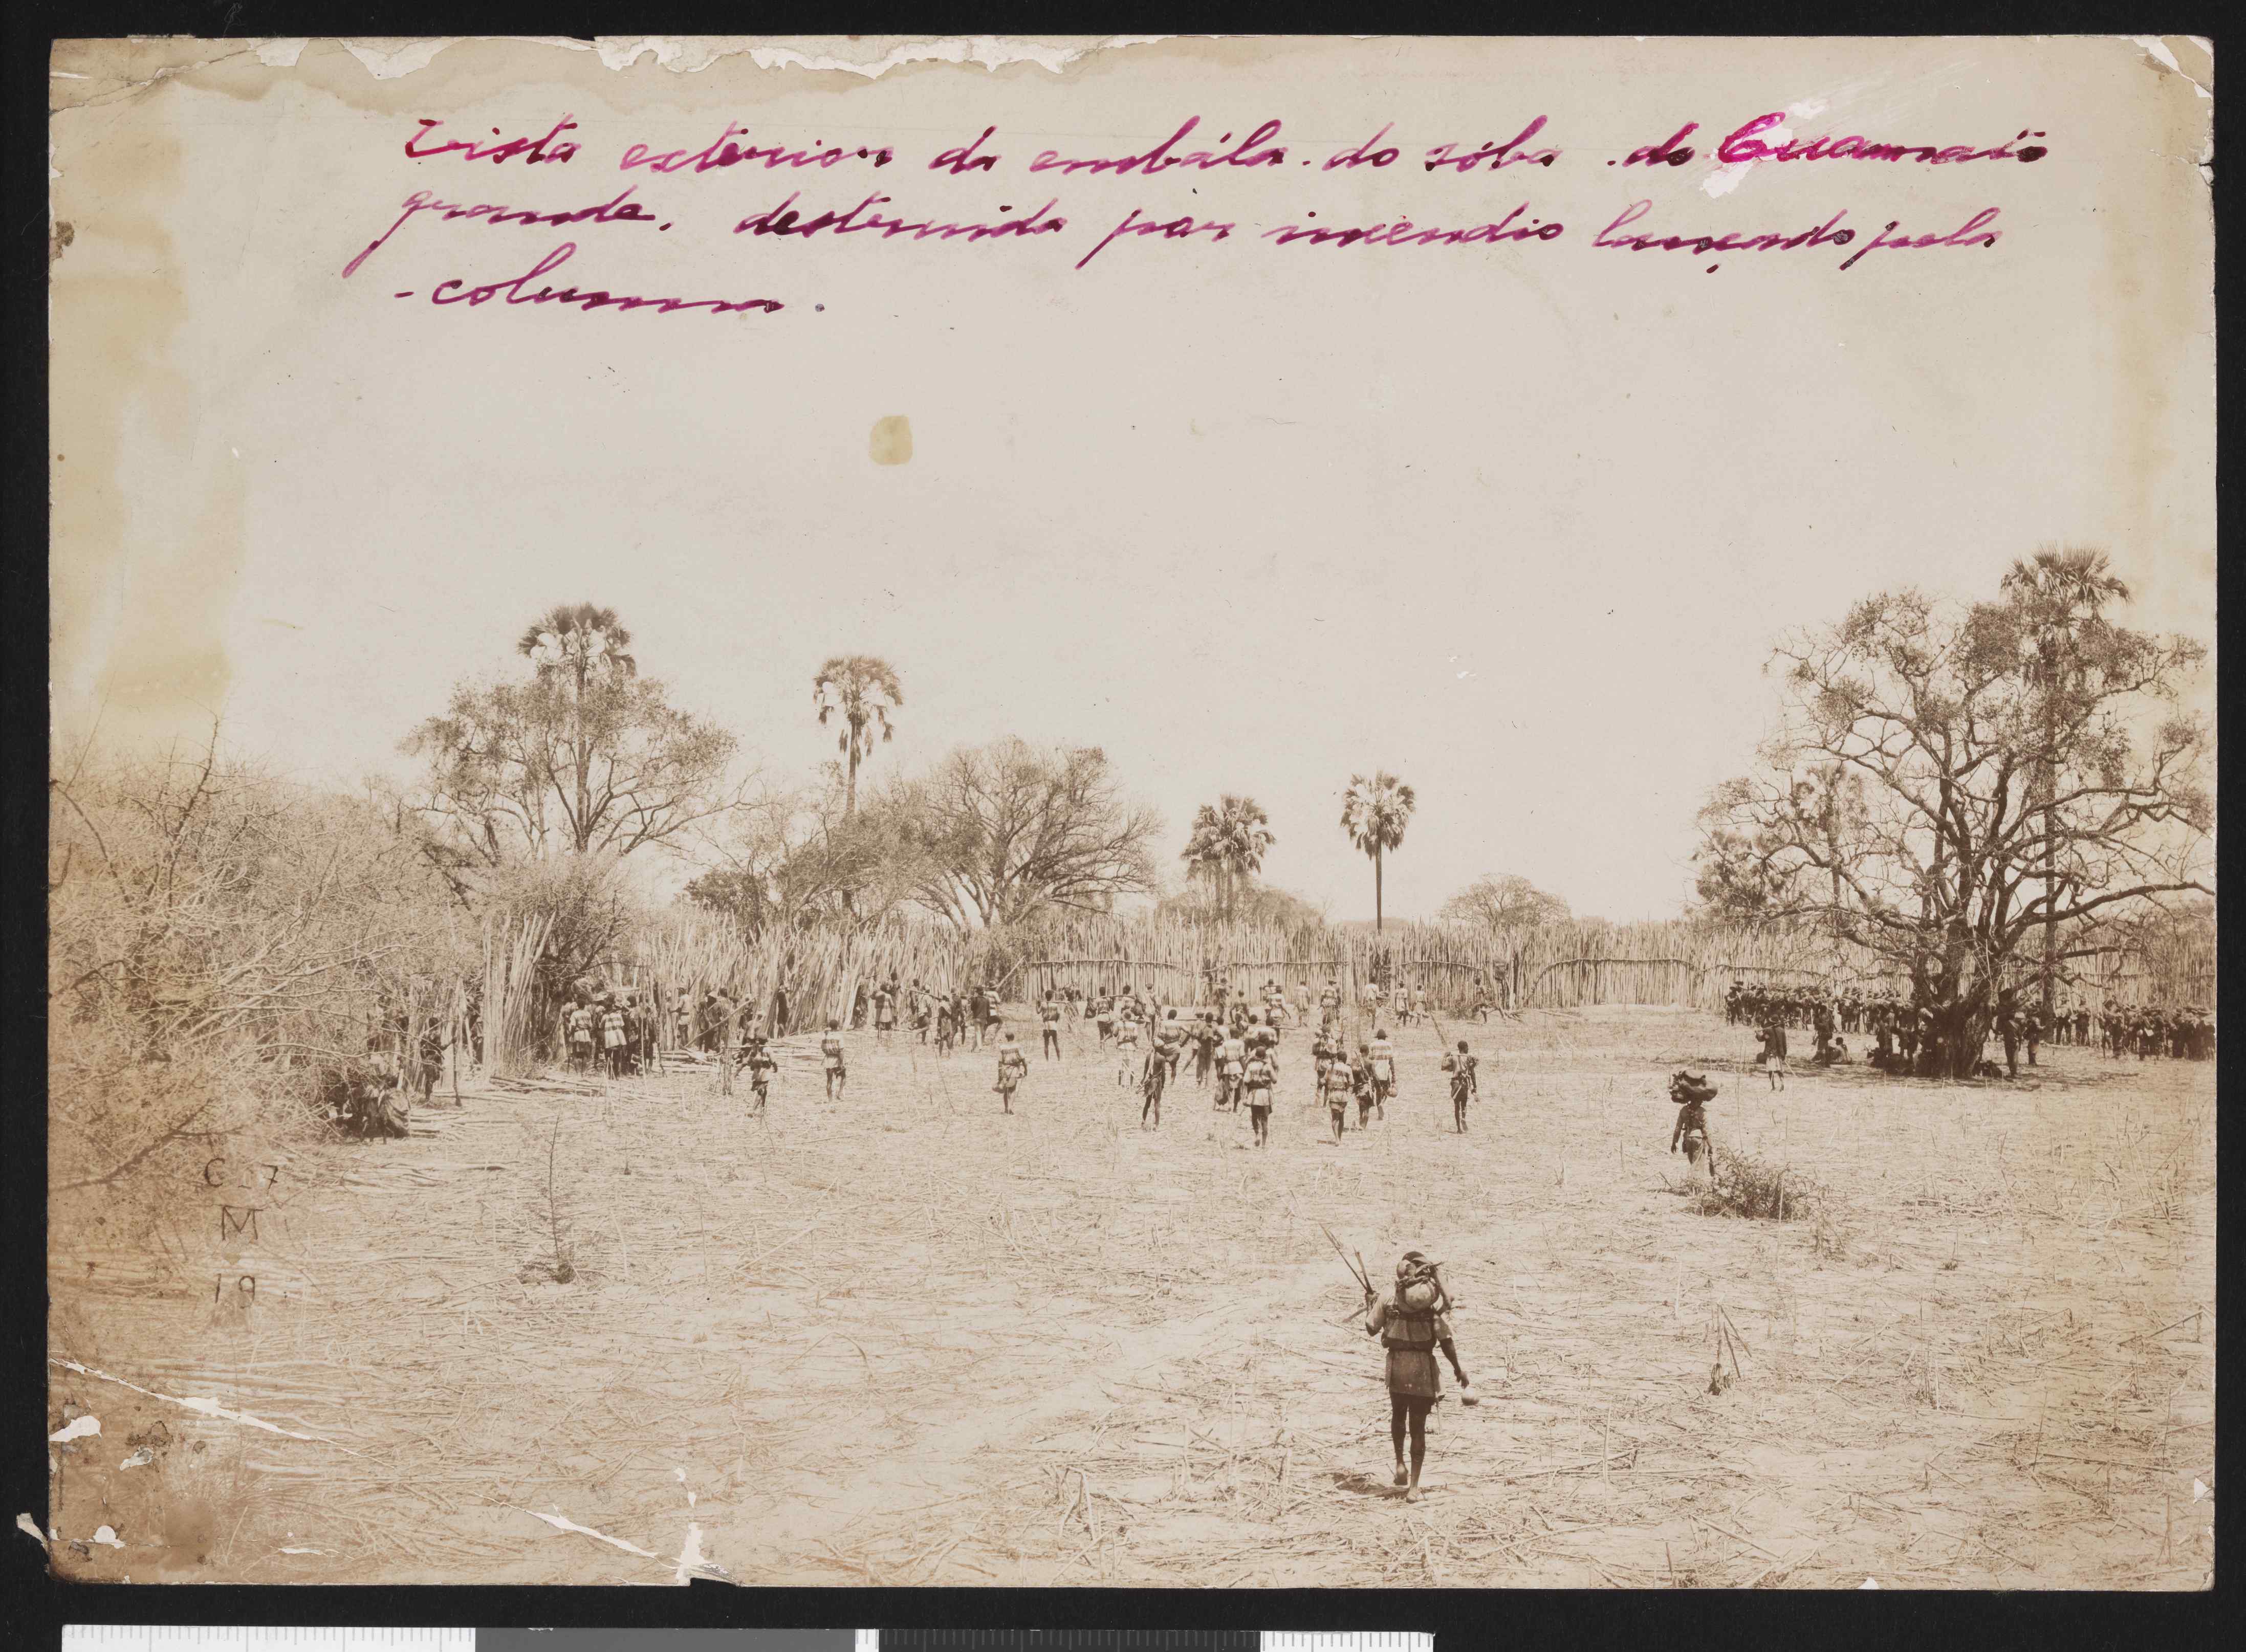 Vista exterior da embála do sóba do Cuamaïo
grande, destruida por incendio lançado pela
-columna.
C_7
M
19